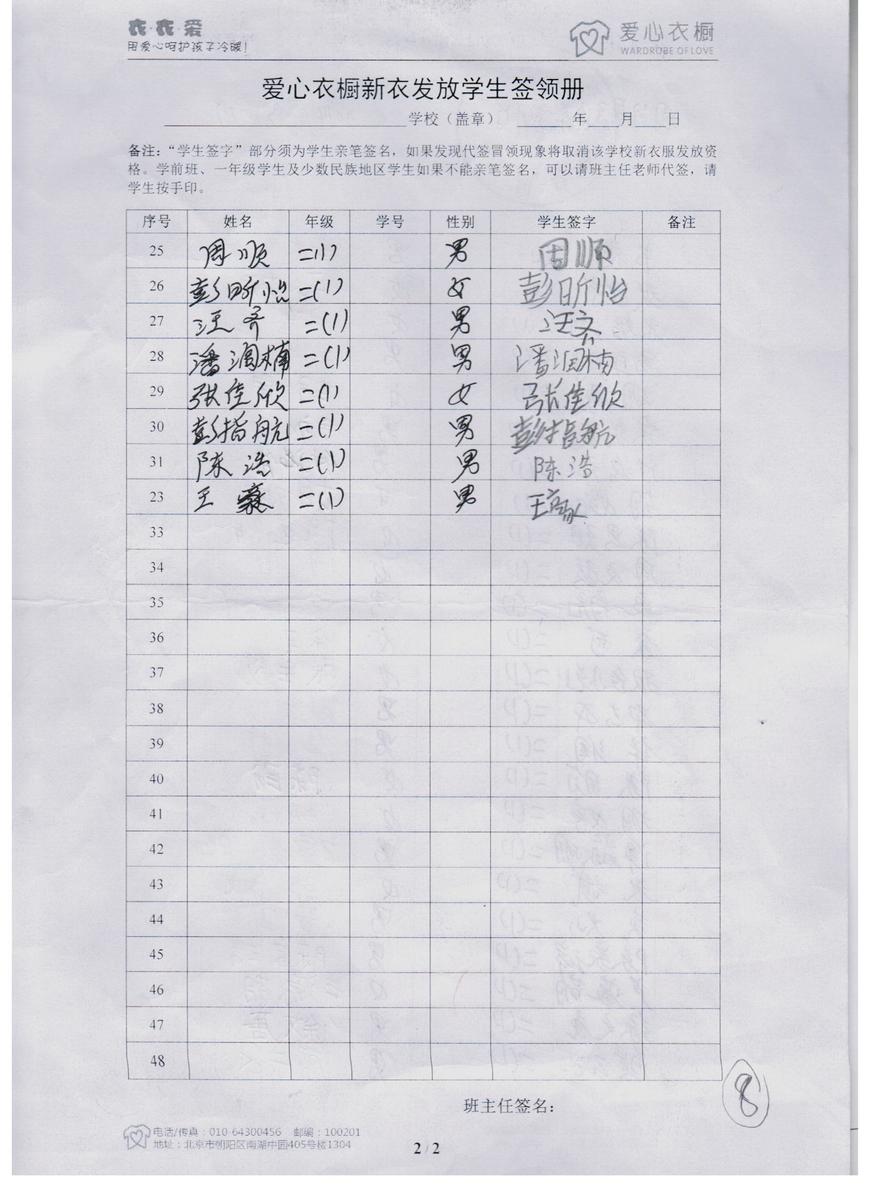 衣·衣·爱
用爱心呵护孩子冷暖!
爱心衣橱
WARDROBE OF LOVE
爱心衣橱新衣发放学生签领册
学校（盖章） 年 月 日
备注：“学生签字”部分须为学生亲笔签名，如果发现代签冒领现象将取消该学校新衣服发放资
格。学前班、一年级学生及少数民族地区学生如果不能亲笔签名，可以请班主任老师代签，请
学生按手印。
序号 姓名 年级 学号 性别 学生签字 备注
25 周顺 二(1) 男 周顺
26 彭昕怡 二(1) 女 彭昕怡
27 汪齐 二(1) 男 汪齐
28 潘润楠 二(1) 男 潘润楠
29 张佳欣 二(1) 女 张佳欣
30 彭指航 二(1) 男 彭指航
31 陈浩 二(1) 男 陈浩
23 王 二(1) 男 王
33
34
35
36
37
38
39
40
41
42
43
44
45
46
47
48
8
班主任签名：
电话/传真：010-64300456 邮编：100201
地址：北京市朝阳区南湖中园405号楼1304
2 / 2